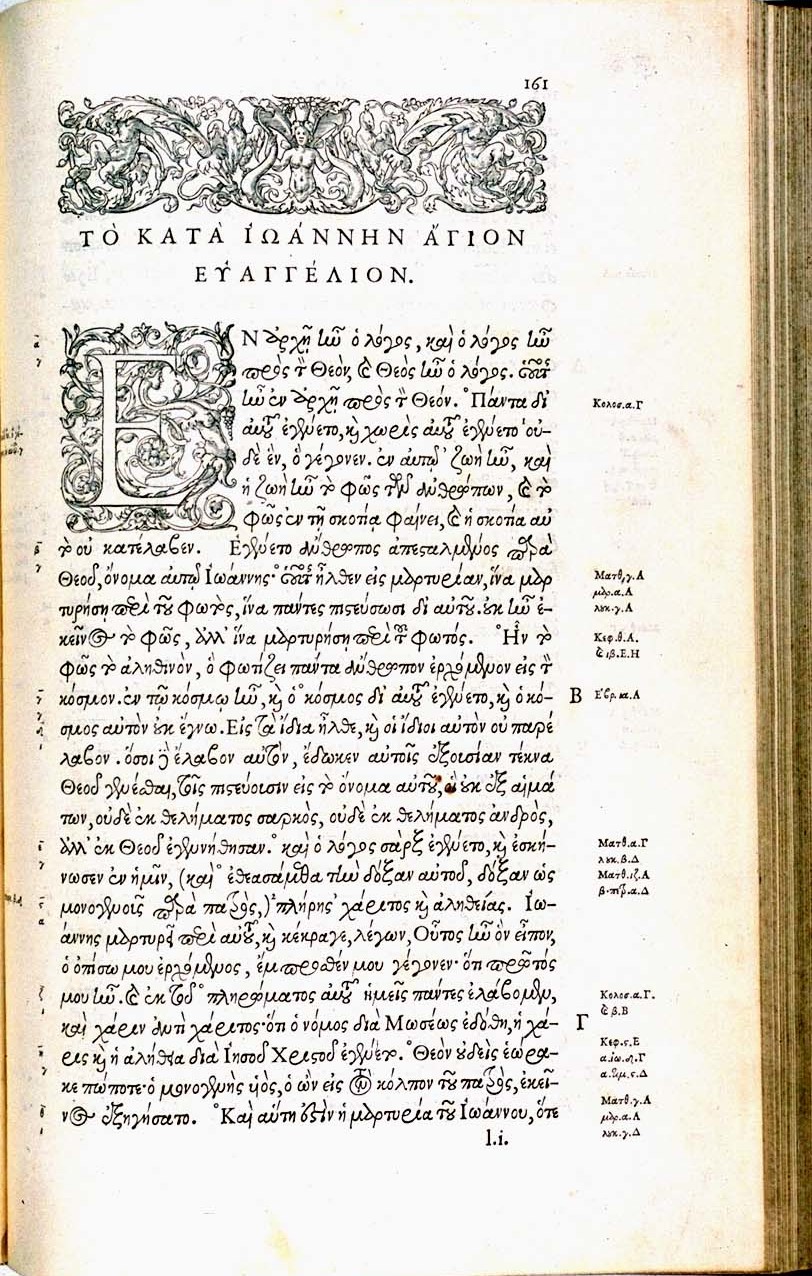 161
ΤῸ ΚΑΤᾺ ἸΩΆΝΝΗΝ ἍΓΙΟΝ
ΕΥ̓ΑΓΓΈΛΙΟΝ.
ΕΝ ἀρχῇ ἦν ὁ λόγος, καὶ ὁ λόγος ἦν
πρὸς τὸν Θεόν, καὶ Θεὸς ἦν ὁ λόγος. οὗτος
ἦν ἐν ἀρχῇ πρὸς τὸν Θεόν. Πάντα δι'
αὐτοῦ ἐγένετο, καὶ χωρὶς αὐτοῦ ἐγένετο οὐ-
δὲ ἓν, ὃ γέγονεν. ἐν αὐτῷ ζωὴ ἦν, καὶ
ἡ ζωὴ ἦν τὸ φῶς τῶν ἀνθρώπων, καὶ τὸ
φῶς ἐν τῇ σκοτίᾳ φαίνει, καὶ ἡ σκοτία αὐ
τὸ οὐ κατέλαβεν. Ἐγένετο ἄνθρωπος ἀπεσταλμένος παρὰ
Θεοῦ, ὄνομα αὐτῷ Ἰωάννης· οὗτος ἦλθεν εἰς μαρτυρίαν, ἵνα μαρ
τυρήσῃ περὶ τοῦ φωτὸς, ἵνα πάντες πιστεύσωσι δι' αὐτοῦ. οὐκ ἦν ἐ-
κεῖνος τὸ φῶς, ἀλλ' ἵνα μαρτυρήσῃ περὶ τοῦ φωτός. Ἦν τὸ
φῶς τὸ ἀληθινὸν, ὃ φωτίζει πάντα ἄνθρωπον ἐρχόμενον εἰς τὸν
κόσμον. ἐν τῷ κόσμῳ ἦν, καὶ ὁ κόσμος δι' αὐτοῦ ἐγένετο, καὶ ὁ κό-
σμος αὐτὸν οὐκ ἔγνω. Εἰς τὰ ἴδια ἦλθε, καὶ οἱ ἴδιοι αὐτὸν οὐ παρέ
λαβον. ὅσοι δὲ ἔλαβον αὐτὸν, ἔδωκεν αὐτοῖς ἐξουσίαν τέκνα
Θεοῦ γενέσθαι, τοῖς πιστεύουσιν εἰς τὸ ὄνομα αὐτοῦ, οἳ οὐκ ἐξ αἱμά
των, οὐδὲ ἐκ θελήματος σαρκὸς, οὐδὲ ἐκ θελήματος ἀνδρὸς,
ἀλλ' ἐκ Θεοῦ ἐγεννήθησαν. καὶ ὁ λόγος σὰρξ ἐγένετο, καὶ ἐσκή-
νωσεν ἐν ἡμῖν, (καὶ ἐθεασάμεθα τὴν δόξαν αὐτοῦ, δόξαν ὡς
μονογενοῦς παρὰ πατρὸς,) πλήρης χάριτος καὶ ἀληθείας. Ἰω-
άννης μαρτυρεῖ περὶ αὐτοῦ, καὶ κέκραγε, λέγων, Οὗτος ἦν ὃν εἶπον,
ὁ ὀπίσω μου ἐρχόμενος, ἔμπροσθέν μου γέγονεν· ὅτι πρῶτός
μου ἦν. καὶ ἐκ τοῦ πληρώματος αὐτοῦ ἡμεῖς πάντες ἐλάβομεν,
καὶ χάριν ἀντὶ χάριτος· ὅτι ὁ νόμος διὰ Μωσέως ἐδόθη, ἡ χά-
ρις καὶ ἡ ἀλήθεια διὰ Ἰησοῦ Χριστοῦ ἐγένετο. Θεὸν οὐδεὶς ἑώρα-
κε πώποτε· ὁ μονογενὴς υἱὸς, ὁ ὢν εἰς τὸν κόλπον τοῦ πατρὸς, ἐκεῖ-
νος ἐξηγήσατο. Καὶ αὕτη ἐστὶν ἡ μαρτυρία τοῦ Ἰωάννου, ὅτε
l.i.
Κολοσ.α.Γ
Ματθ.γ.Α
μαρ.α.Α
λουκ.γ.Α
Κεφ.θ.Α.
καὶ ιβ.Ε.Η
Β
Ἑβρ.ια.Α
Ματθ.α.Γ
λουκ.β.Δ
Ματθ.ιζ.Α
β.πετρ.α.Δ
Κολοσ.α.Γ.
καὶ β.Β
Γ
Κεφ.ς.Ε
α.ἰω.δ.Γ
α.τιμ.ς.Δ
Ματθ.γ.Α
μαρ.α.Α
λουκ.γ.Δ